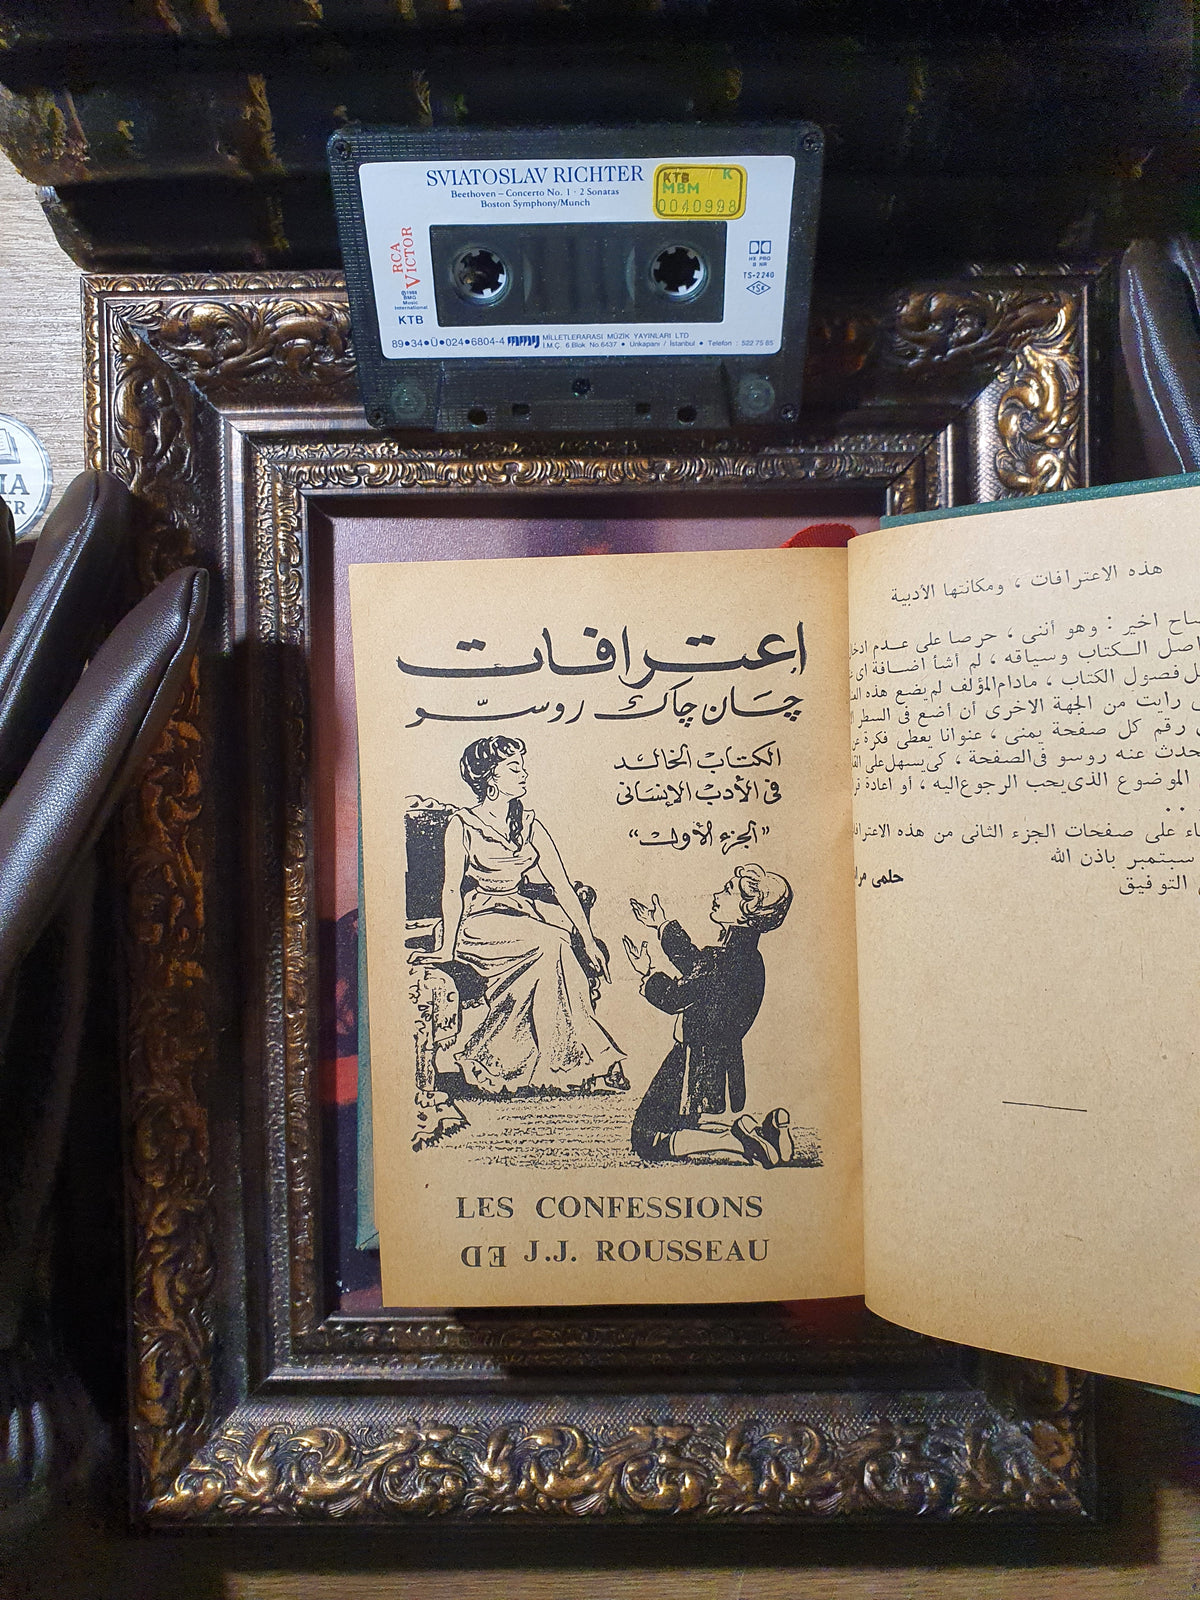 SVIATOSLAV RICHTER
Beethoven – Concerto No. 1 · 2 Sonatas
Boston Symphony/Munch
KTB K
MBM
0040998
RCA VICTOR
©1988
BMG
Music
International
KTB
HX PRO
B NR
TS-2240
TSE
89●34●Ü●024●6804-4
MİLLETLERARASI MÜZİK YAYINLARI LTD
İ.M.Ç. 6.Blok No.6437 ● Unkapanı / İstanbul ● Telefon : 522 75 65
IA
ER
اعترافات
چان چاك روسو
الكتاب الخالد
فى الأدب الإنسانى
"الجزء الأول"
LES CONFESSIONS
DE J.J. ROUSSEAU
هذه الاعترافات ، ومكانتها الأدبية
اخير : وهو أننى ، حرصا على عدم
الكتاب وسياقه ، لم أشأ اضافة اى
فصول الكتاب ، مادام المؤلف لم يضع هذه
رايت من الجهة الاخرى أن أضع فى السطر
رقم كل صفحة يمنى ، عنوانا يعطى فكرة
عنه روسو فى الصفحة ، كى يسهل على
الموضوع الذى يحب الرجوع اليه ، أو اعادة
على صفحات الجزء الثانى من هذه
سبتمبر باذن الله
التوفيق
حلمى